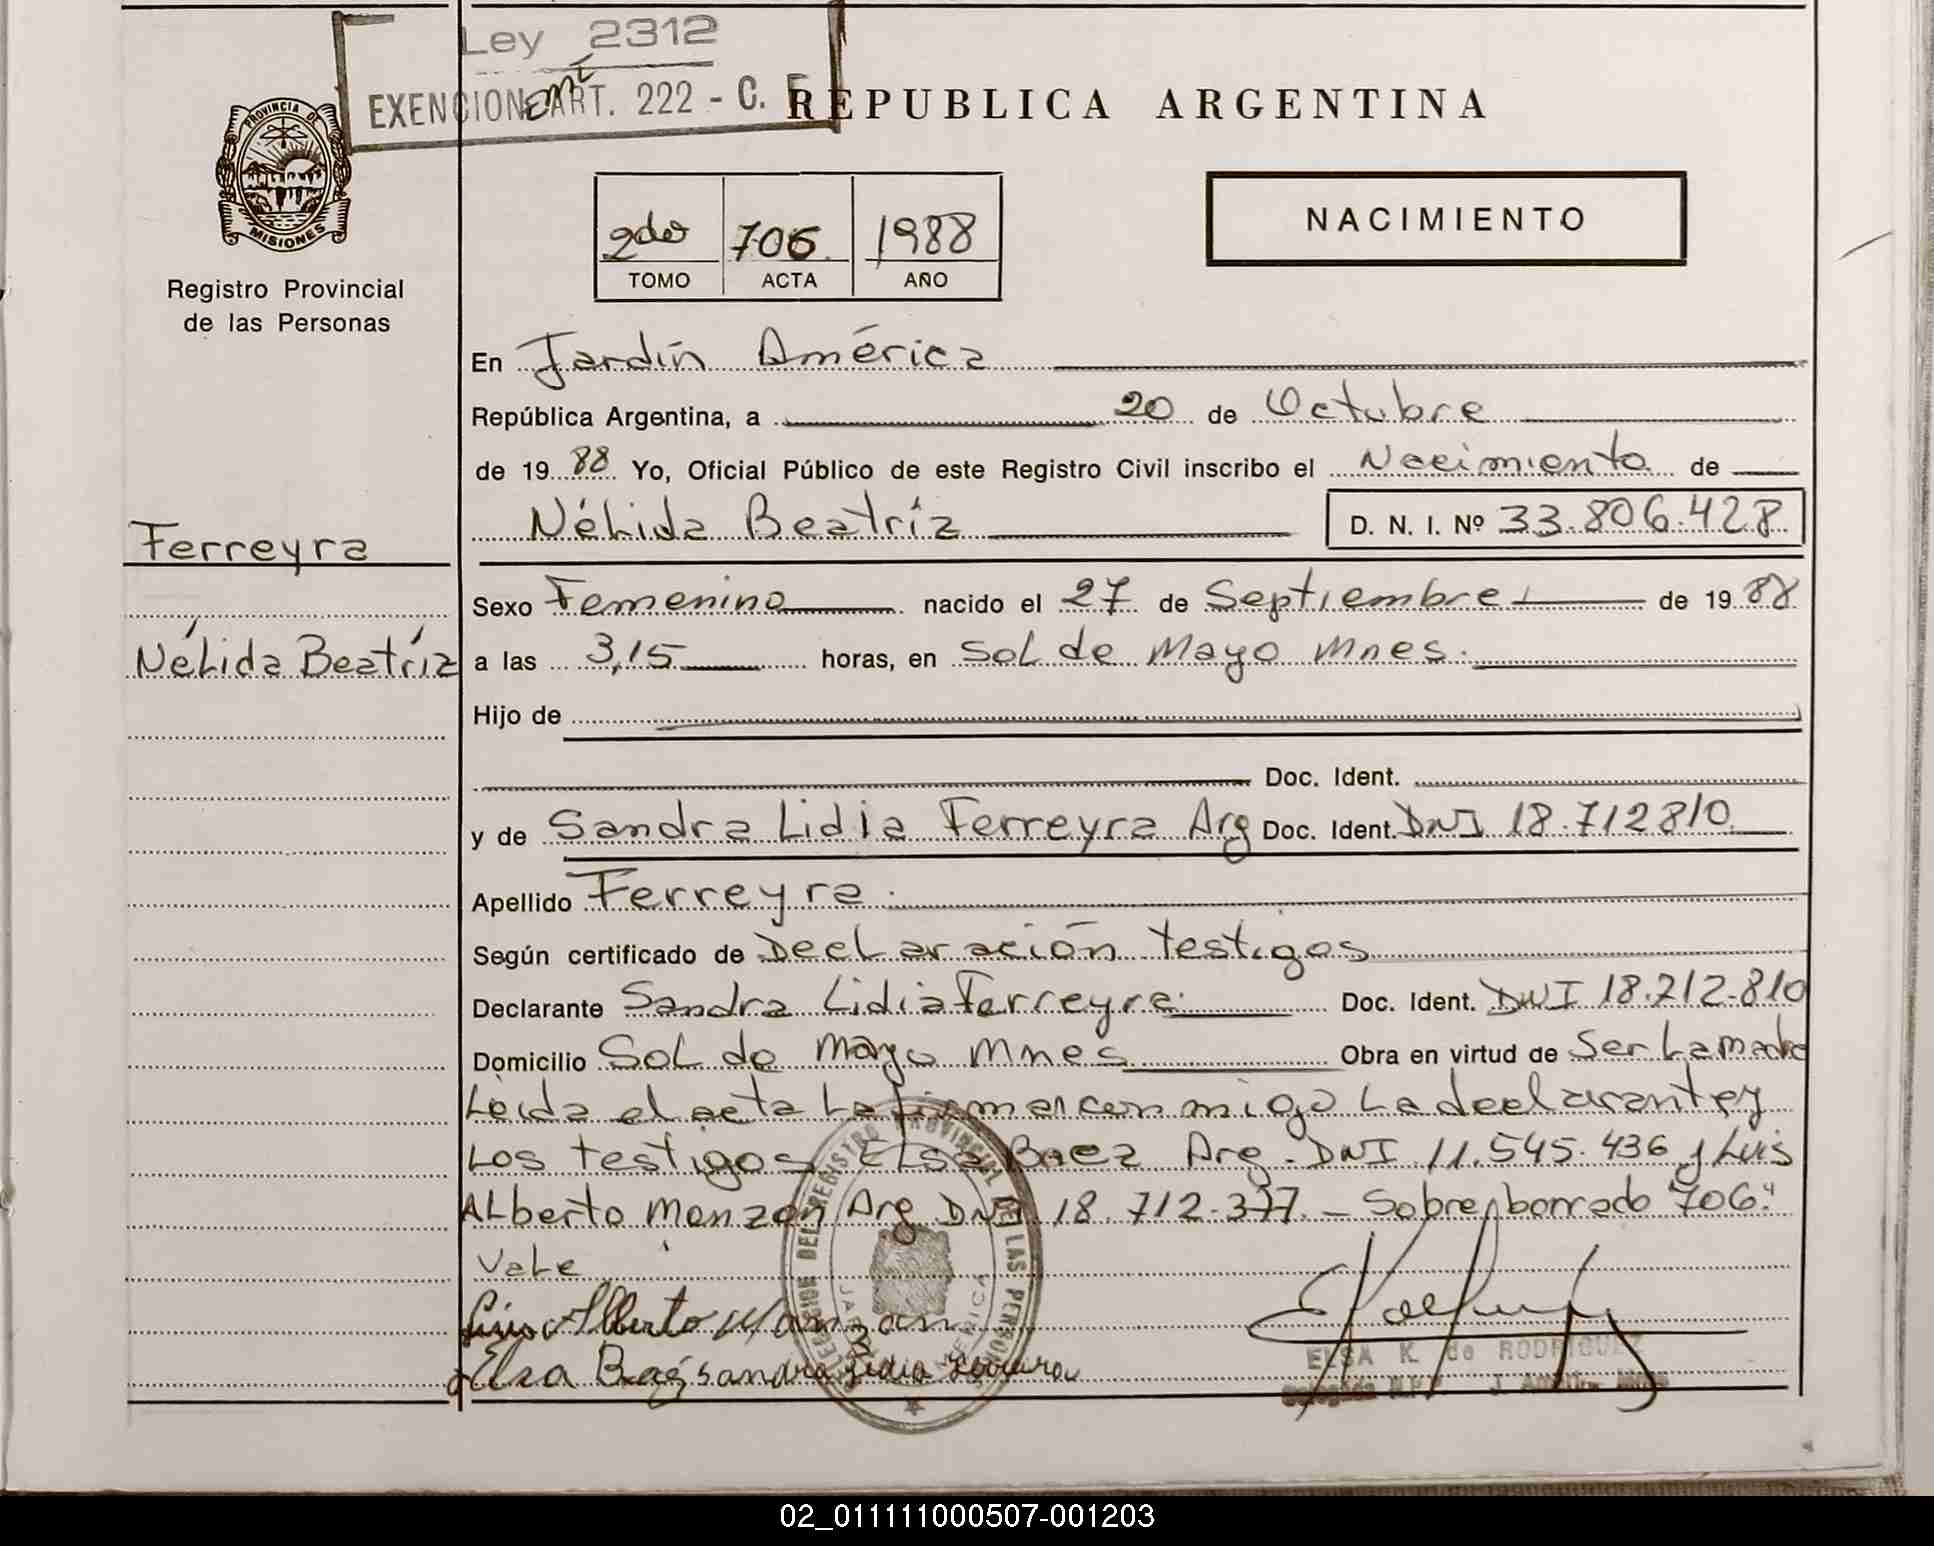 Ley 2312
EXENCION ART. 222 - C. F.
REPUBLICA ARGENTINA
PROVINCIA DE
MISIONES
Registro Provincial
de las Personas
2do 706 1988
TOMO ACTA AÑO
NACIMIENTO
En Jardín América
República Argentina, a 20 de Octubre
de 19 88 Yo, Oficial Público de este Registro Civil inscribo el Nacimiento de
Nélida Beatríz D. N. I. Nº 33.806.428
Ferreyra
Nélida Beatríz
Sexo Femenino nacido el 27 de Septiembre de 19 88
a las 3,15 horas, en Sol de Mayo Mnes.
Hijo de
Doc. Ident.
y de Sandra Lidia Ferreyra Arg Doc. Ident. DNI 18.712810
Apellido Ferreyra
Según certificado de Declaración testigos
Declarante Sandra Lidia Ferreyra Doc. Ident. DNI 18.712.810
Domicilio Sol de Mayo Mnes Obra en virtud de Ser La madre
Leida el acta La firman conmigo La declarante y
Los testigos Elsa Baez Arg. DNI 11.545.436 y Luis
Alberto Monzon Arg DNI 18.712.377. - Sobre borrado "706"
Vale
Luis Alberto Monzon
Elsa Baez Sandra Lidia Ferreyra
DEL REGISTRO PROVINCIAL DE LAS PERSONAS
ELSA K. de RODRIGUEZ
02_011111000507-001203